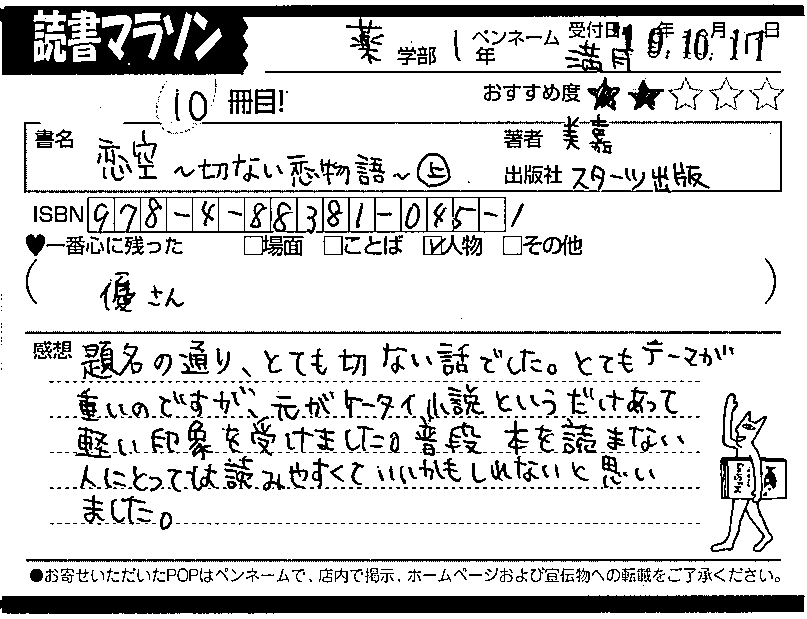 読書マラソン
薬 学部 1 年 ペンネーム 満月 受付日 19年10月17日
10 冊目! おすすめ度 ★★☆☆☆
書名 恋空 ~切ない恋物語~ 上 著者 美嘉
出版社 スターツ出版
ISBN 978-4-88381-045-1
♥一番心に残った □場面 □ことば ☑人物 □その他
( 優さん )
感想 題名の通り、とても切ない話でした。とてもテーマが
重いのですが、元がケータイ小説というだけあって
軽い印象を受けました。普段本を読まない
人にとっては読みやすくていいかもしれないと思い
ました。
●お寄せいただいたPOPはペンネームで、店内で掲示、ホームページおよび宣伝物への転載をご了承ください。